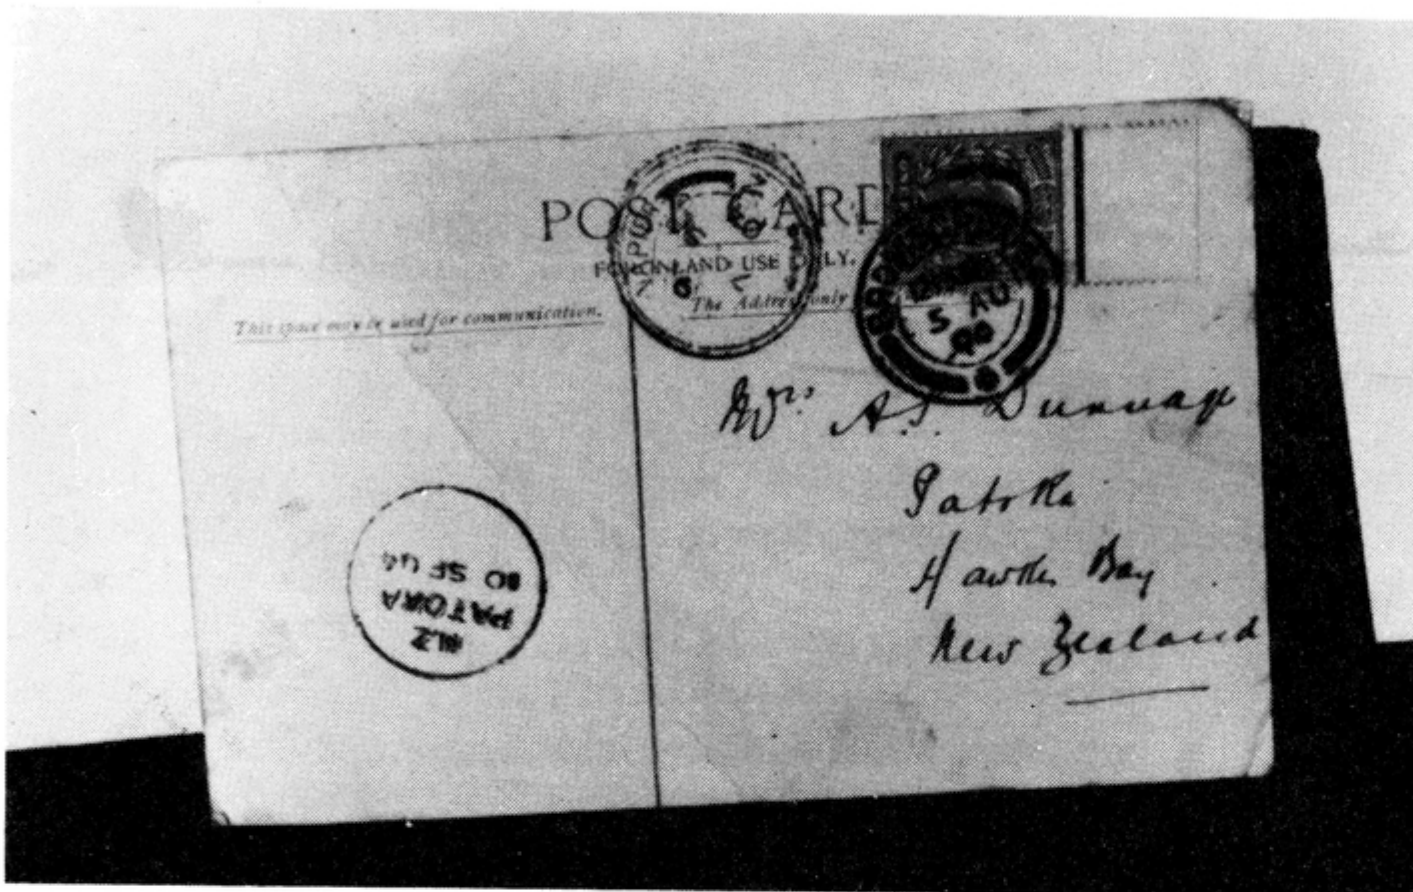 POST CARD
FOR INLAND USE ONLY.
This space may be used for communication.
The Address only
NAPIER
5 AU
Mrs. A.J. Dunnage
Patoka
Hawkes Bay
New Zealand
N.Z
PATOKA
10 SE 04